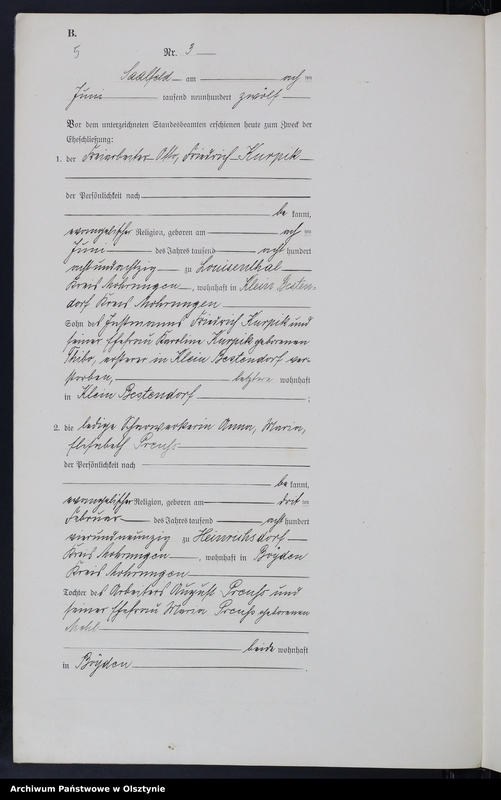 B.
5
Nr. 3
Saalfeld am ach ten
Juni tausend neunhundert zwölf
Vor dem unterzeichneten Standesbeamten erschienen heute zum Zweck der
Eheschließung:
1. der Freiarbeiter Otto, Friedrich Kurpik
der Persönlichkeit nach
be kannt,
evangelischer Religion, geboren am ach ten
Juni des Jahres tausend acht hundert
achtundachtzig zu Louisenthal
Kreis Mohrungen, wohnhaft in Klein Besten-
dorf Kreis Mohrungen
Sohn des Instmannes Friedrich Kurpik und
seiner Ehefrau Karoline Kurpik geborenen
ersterer in Klein Bestendorf ver-
storben, letztere wohnhaft
in Klein Bestendorf ;
2. die ledige Scharwerkerin Anna, Maria,
Elisabeth Preuß
der Persönlichkeit nach
be kannt,
evangelischer Religion, geboren am drit ten
Februar des Jahres tausend acht hundert
vierundneunzig zu Heinrichsdorf
Kreis Mohrungen, wohnhaft in Böyden
Kreis Mohrungen
Tochter des Arbeiters August Preuß und
seiner Ehefrau Maria Preuß geborenen
beide wohnhaft
in Böyden .
Archiwum Państwowe w Olsztynie